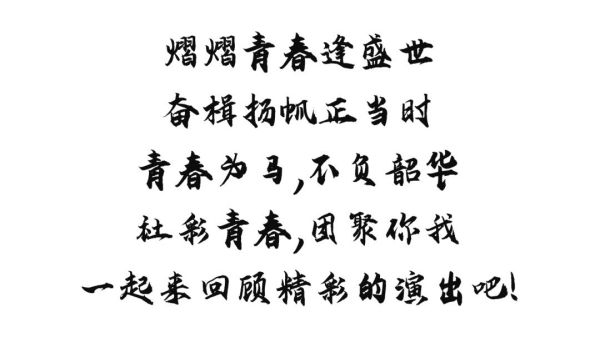 熠熠青春逢盛世
奋楫扬帆正当时
青春为马,不负韶华
社彩青春,团聚你我
一起来回顾精彩的演出吧!